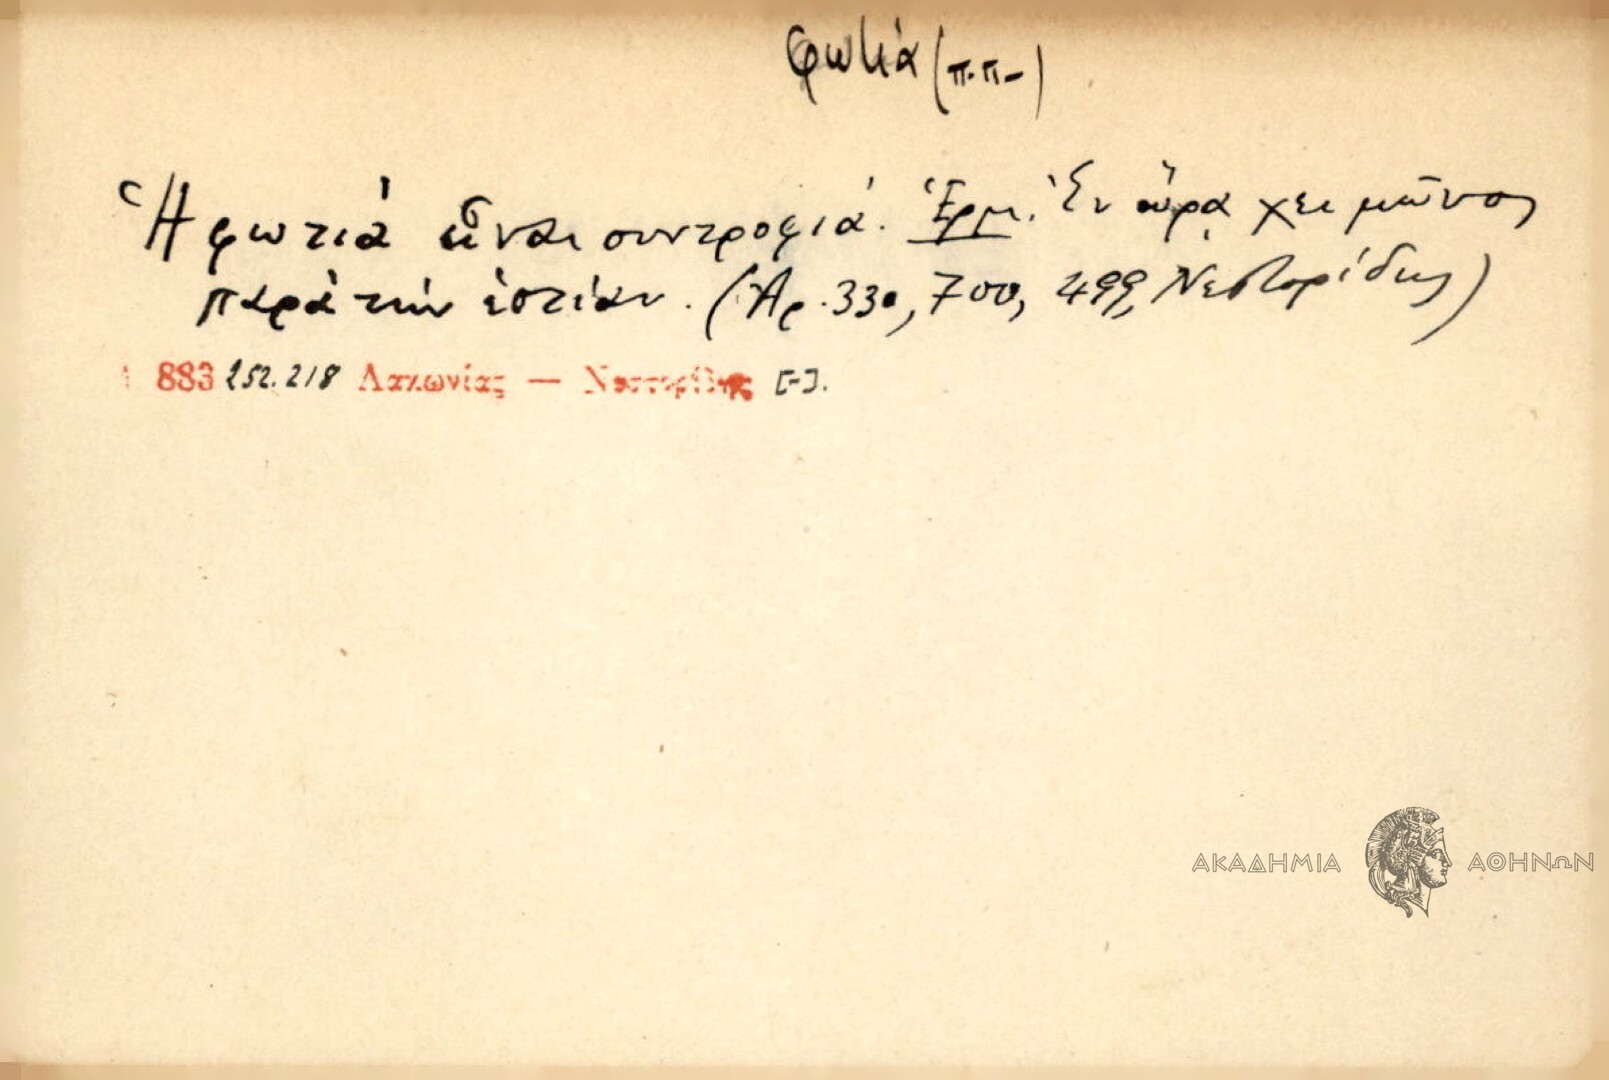 φωτιά (π.π-)
Ἡ φωτιά εἶναι συντροφιά. Ἑρμ. Ἐν ὥρᾳ χειμῶνος
παρὰ τὴν ἑστίαν. (Ἀρ. 330, 700, 499, Νεστορίδης)
883 252.218 Λακωνίας — Νεστορίδης [-].
ΑΚΑΔΗΜΙΑ ΑΘΗΝΩΝ